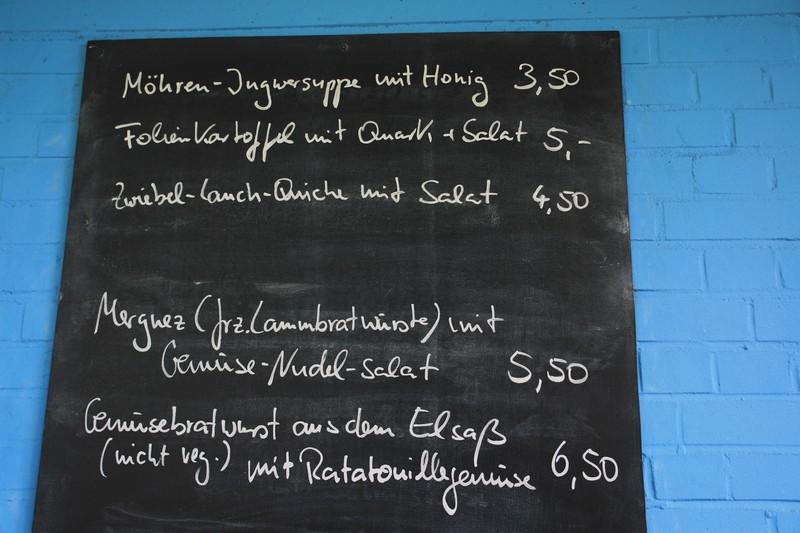 Möhren-Ingwersuppe mit Honig 3,50
Folienkartoffel mit Quark + Salat 5,-
Zwiebel-Lauch-Quiche mit Salat 4,50
Merguez (frz. Lammbratwürste) mit
Gemüse-Nudel-Salat 5,50
Gemüsebratwurst aus dem Elsaß
(nicht veg.) mit Ratatouillegemüse 6,50